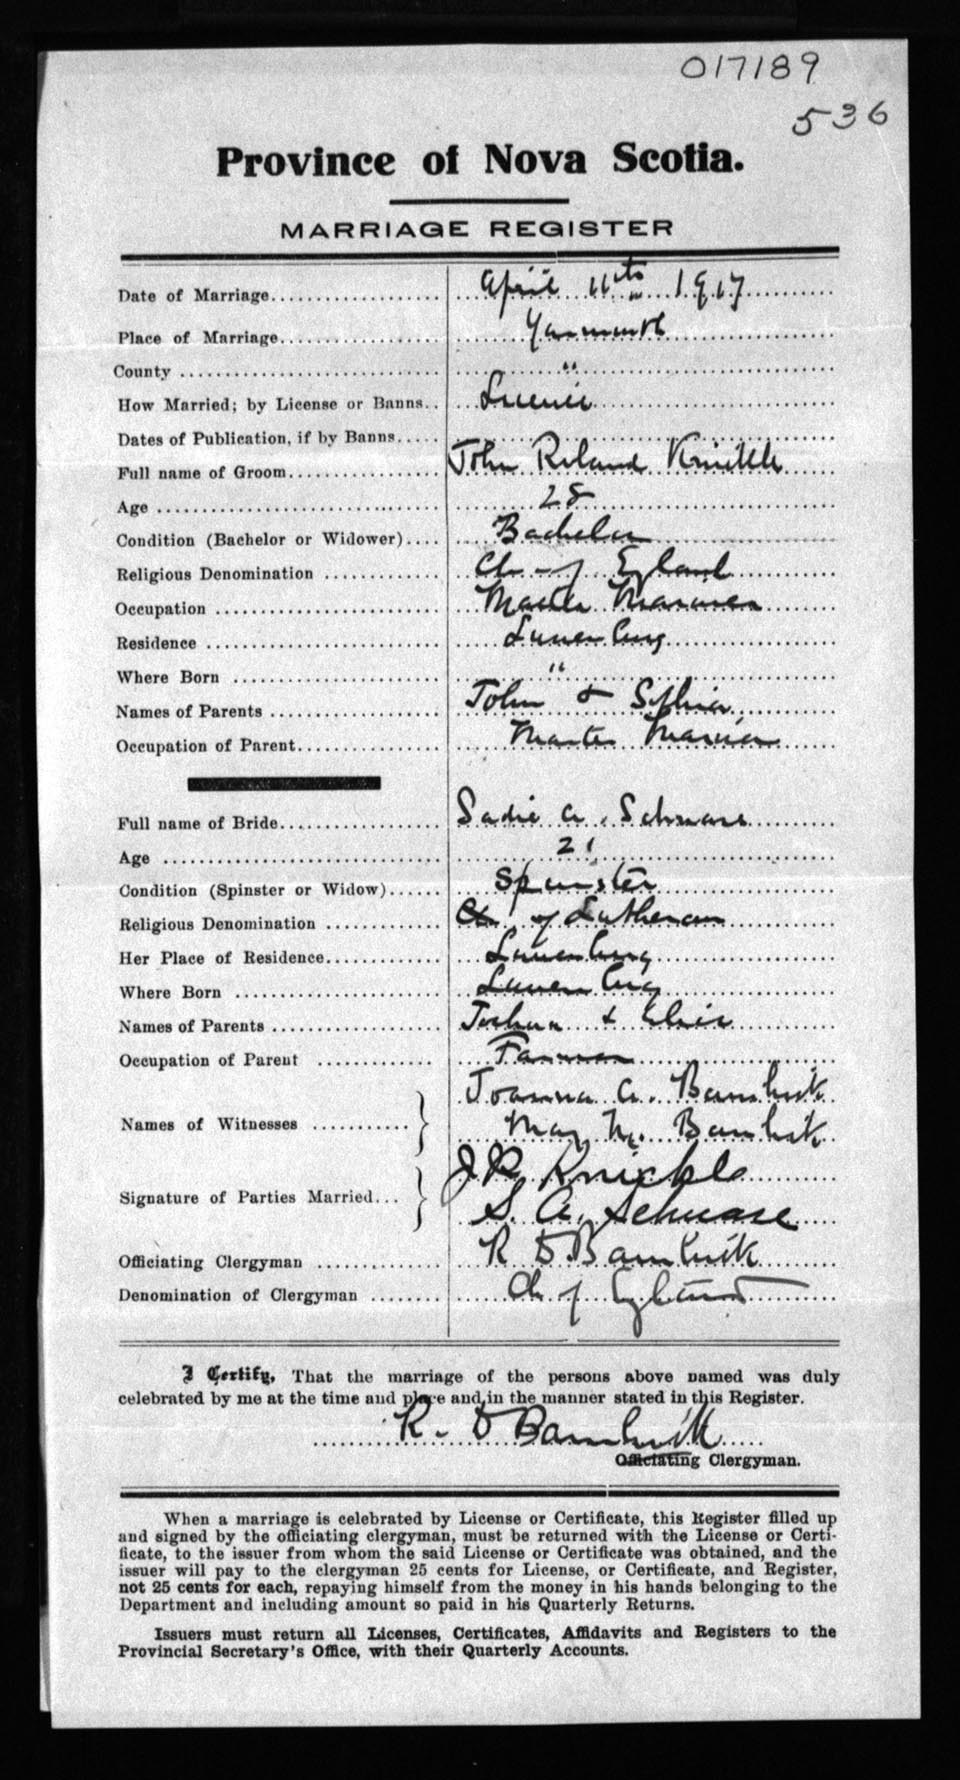 017189
536
Province of Nova Scotia.
MARRIAGE REGISTER
Date of Marriage April 11th 1917
Place of Marriage Yarmouth
County "
How Married; by License or Banns License
Dates of Publication, if by Banns
Full name of Groom John Roland Knickle
Age 28
Condition (Bachelor or Widower) Bachelor
Religious Denomination Ch of England
Occupation Master Mariner
Residence Lunenburg
Where Born "
Names of Parents John & Sophia
Occupation of Parent Master Mariner
Full name of Bride Sadie A. Schnare
Age 21
Condition (Spinster or Widow) Spinster
Religious Denomination Ch of Lutheran
Her Place of Residence Lunenburg
Where Born Lunenburg
Names of Parents Joshua &
Occupation of Parent Farmer
Names of Witnesses Joanna A. Bambrick
May M. Bambrick
Signature of Parties Married J R Knickle
S. A. Schnare
Officiating Clergyman R D Bambrick
Denomination of Clergyman Ch of England
I Certify, That the marriage of the persons above named was duly
celebrated by me at the time and place and in the manner stated in this Register.
R. D Bambrick
Officiating Clergyman.
When a marriage is celebrated by License or Certificate, this Register filled up
and signed by the officiating clergyman, must be returned with the License or Certi-
ficate, to the issuer from whom the said License or Certificate was obtained, and the
issuer will pay to the clergyman 25 cents for License, or Certificate, and Register,
not 25 cents for each, repaying himself from the money in his hands belonging to the
Department and including amount so paid in his Quarterly Returns.
Issuers must return all Licenses, Certificates, Affidavits and Registers to the
Provincial Secretary's Office, with their Quarterly Accounts.